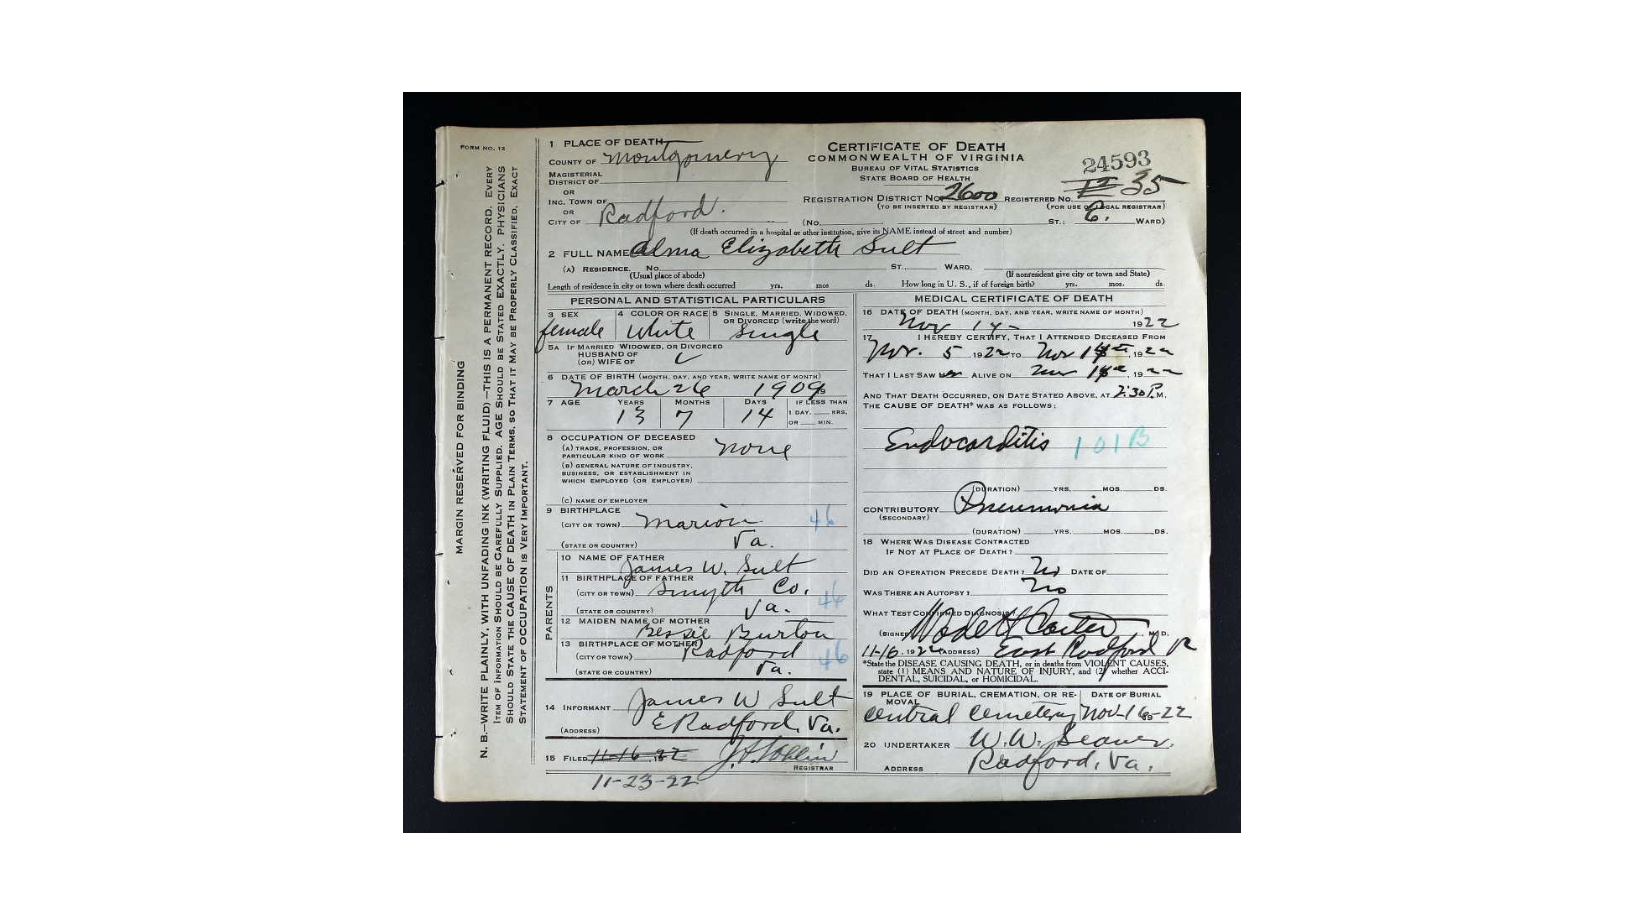 FORM NO. 12
MARGIN RESERVED FOR BINDING
N. B.—WRITE PLAINLY, WITH UNFADING INK (WRITING FLUID)—THIS IS A PERMANENT RECORD. EVERY
ITEM OF INFORMATION SHOULD BE CAREFULLY SUPPLIED. AGE SHOULD BE STATED EXACTLY. PHYSICIANS
SHOULD STATE THE CAUSE OF DEATH IN PLAIN TERMS, SO THAT IT MAY BE PROPERLY CLASSIFIED. EXACT
STATEMENT OF OCCUPATION IS VERY IMPORTANT.
1 PLACE OF DEATH
COUNTY OF Montgomery
MAGISTERIAL
DISTRICT OF
OR
INC. TOWN OF
OR
CITY OF Radford.
CERTIFICATE OF DEATH
COMMONWEALTH OF VIRGINIA
BUREAU OF VITAL STATISTICS
STATE BOARD OF HEALTH
24593
REGISTRATION DISTRICT NO. 2600 REGISTERED NO. 35
(TO BE INSERTED BY REGISTRAR) (FOR USE OF LOCAL REGISTRAR)
(No. ST.; 6. WARD)
(If death occurred in a hospital or other institution, give its NAME instead of street and number)
2 FULL NAME Alma Elizabeth Sult
(A) RESIDENCE. No. ST., WARD,
(Usual place of abode) (If nonresident give city or town and State)
Length of residence in city or town where death occurred yrs. mos ds. How long in U. S., if of foreign birth? yrs. mos. ds.
PERSONAL AND STATISTICAL PARTICULARS
3 SEX 4 COLOR OR RACE 5 SINGLE, MARRIED, WIDOWED,
OR DIVORCED (write the word)
female White Single
5A IF MARRIED WIDOWED, OR DIVORCED
HUSBAND OF
(OR) WIFE OF
6 DATE OF BIRTH (MONTH, DAY, AND YEAR, WRITE NAME OF MONTH)
March 26 1909
7 AGE YEARS MONTHS DAYS IF LESS THAN
1 DAY, HRS.
OR MIN.
13 7 14
8 OCCUPATION OF DECEASED
(A) TRADE, PROFESSION, OR
PARTICULAR KIND OF WORK none
(B) GENERAL NATURE OF INDUSTRY,
BUSINESS, OR ESTABLISHMENT IN
WHICH EMPLOYED (OR EMPLOYER)
(C) NAME OF EMPLOYER
9 BIRTHPLACE
(CITY OR TOWN) Marion 46
(STATE OR COUNTRY) Va.
PARENTS
10 NAME OF FATHER
James W. Sult
11 BIRTHPLACE OF FATHER
(CITY OR TOWN) Smyth Co. 46
(STATE OR COUNTRY) Va.
12 MAIDEN NAME OF MOTHER
Bessie Burton
13 BIRTHPLACE OF MOTHER
(CITY OR TOWN) Radford 46
(STATE OR COUNTRY) Va.
14 INFORMANT James W Sult
(ADDRESS) E Radford, Va.
15 FILED 11-16-22
REGISTRAR
11-23-22
MEDICAL CERTIFICATE OF DEATH
16 DATE OF DEATH (MONTH, DAY, AND YEAR, WRITE NAME OF MONTH)
Nov 14 1922
17 I HEREBY CERTIFY, THAT I ATTENDED DECEASED FROM
Nov. 5, 1922 TO Nov 14th, 1922
THAT I LAST SAW her ALIVE ON Nov 14th, 1922
AND THAT DEATH OCCURRED, ON DATE STATED ABOVE, AT 2:30 P.M.
THE CAUSE OF DEATH* WAS AS FOLLOWS:
Endocarditis 101B
(DURATION) YRS. MOS. DS.
CONTRIBUTORY Pneumonia
(SECONDARY)
(DURATION) YRS. MOS. DS.
18 WHERE WAS DISEASE CONTRACTED
IF NOT AT PLACE OF DEATH?
DID AN OPERATION PRECEDE DEATH? No DATE OF
WAS THERE AN AUTOPSY? No
WHAT TEST CONFIRMED DIAGNOSIS?
(SIGNED) M.D.
11-16, 1922 (ADDRESS) East Radford
*State the DISEASE CAUSING DEATH, or in deaths from VIOLENT CAUSES,
state (1) MEANS AND NATURE OF INJURY, and (2) whether ACCI-
DENTAL, SUICIDAL, or HOMICIDAL.
19 PLACE OF BURIAL, CREMATION, OR RE-
MOVAL DATE OF BURIAL
Central Cemetery Nov-16-22
20 UNDERTAKER W.W. Seaver.
ADDRESS Radford, Va.